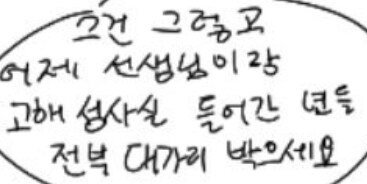 그건 그렇고
어제 선생님이랑
고해성사실 들어간 년들
전부 대가리 박으세요